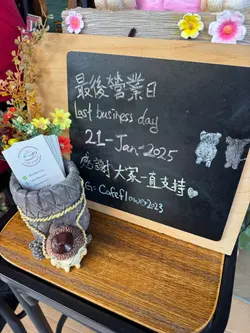 最後營業日
Last business day
21-Jan-2025
感謝大家一直支持
IG: Cafeflower2023